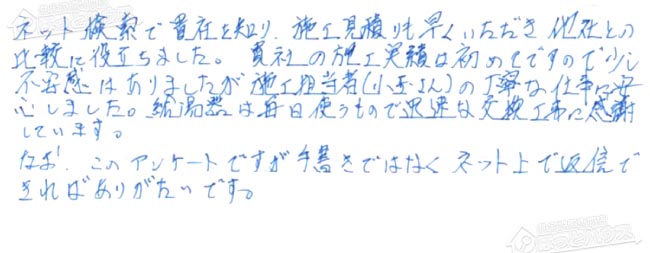 ネット検索で貴社を知り、施工見積りも早くいただき他社との
比較に役立ちました。貴社の施工実績は初めてですので少し
不安感はありましたが施工担当者(小玉さん)の丁寧な仕事に安
心しました。給湯器は毎日使うもので迅速な交換工事に感謝
しています。
なお、このアンケートですが手書きではなくネット上で返信で
きればありがたいです。